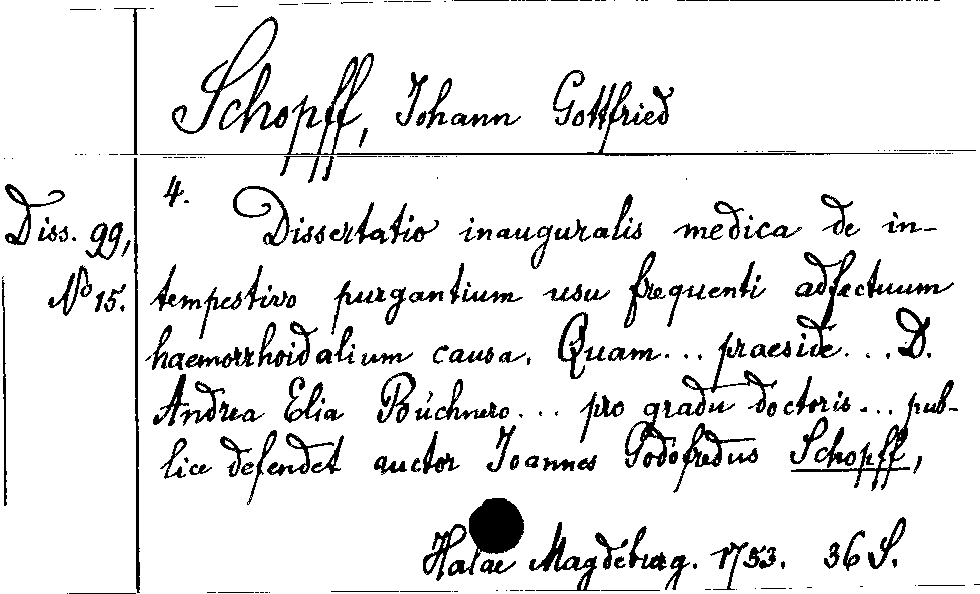 Schopff, Johann Gottfried
Diss. 99,
No 15.
4.
Dissertatio inauguralis medica de in-
tempestivo purgantium usu frequenti adfectuum
haemorrhoidalium causa. Quam... praeside... D.
Andrea Elia Büchnero... pro gradu doctoris... pub-
lice defendet auctor Joannes Godofredus Schopff,
Halae Magdeburg. 1753. 36 S.